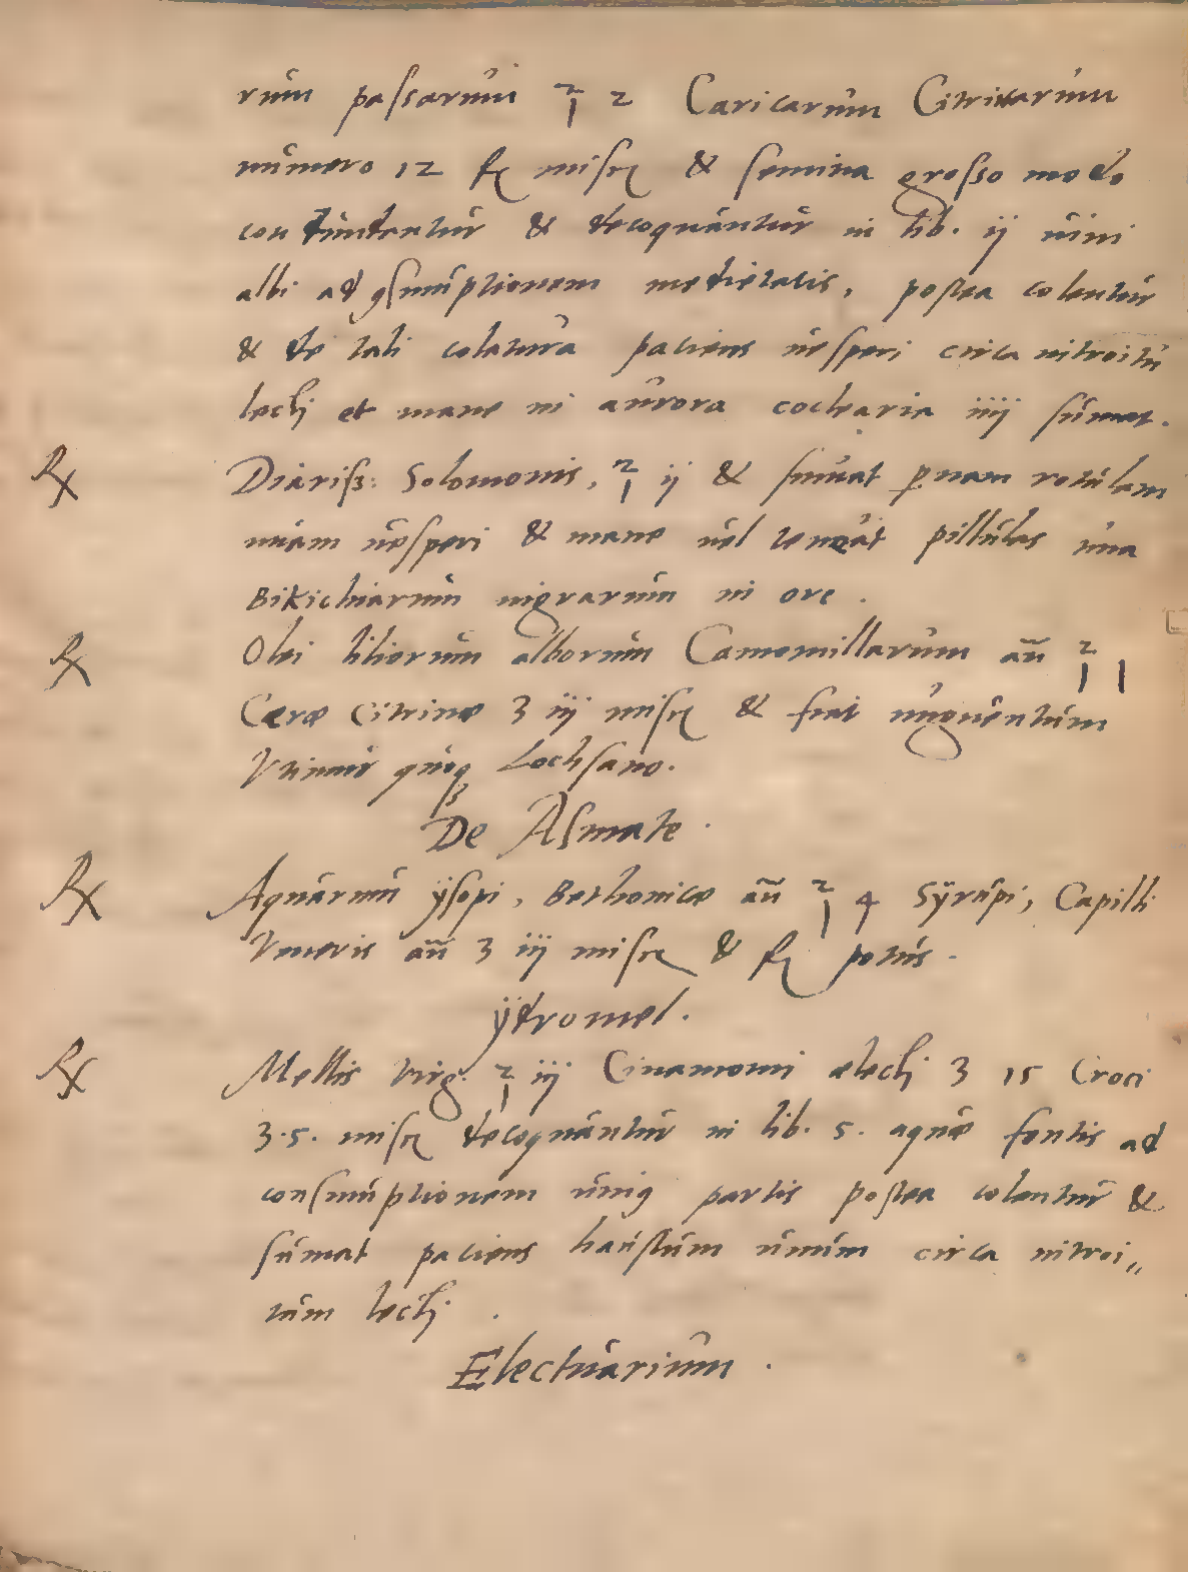 rum passarum ℥ 2 Caricarum Citrinarum
numero 12 f misce & semina grosso modo
contundantur & decoquantur in lib. ij uini
albi ad gsumptionem medietatis, postea colentur
& de tali colatura paciens uesperi circa introitū
lecti et mane in aurora coclearia iiij sumat.
℞ Diariss: Solomonis, ℥ ij & sumat p nam rotulam
unam uesperi & mane uel teneat pillulas una
Bikichiarum nigrarum in ore.
℞ Olei liliorum alborum Camomillarum añ ℥ 1
Ceræ Citrinæ ʒ iij misce & fiat unguentum
Utimur quoq Lochsano.
De Asmate.
℞ Aquarum ÿsopi, Bethonicæ añ ℥ 4 Sÿrupi, Capilli
Veneris añ ʒ iij misce & f potus.
ÿdromel.
℞ Mellis Virg: ℥ iij Cinamomi electi ʒ 15 Croci
ʒ.5. misce decoquantur in lib. 5. aquæ fontis ad
consumptionem unig partis postea colentur &
sumat paciens haustum unum circa introi„
tum lecti.
Electuarium.